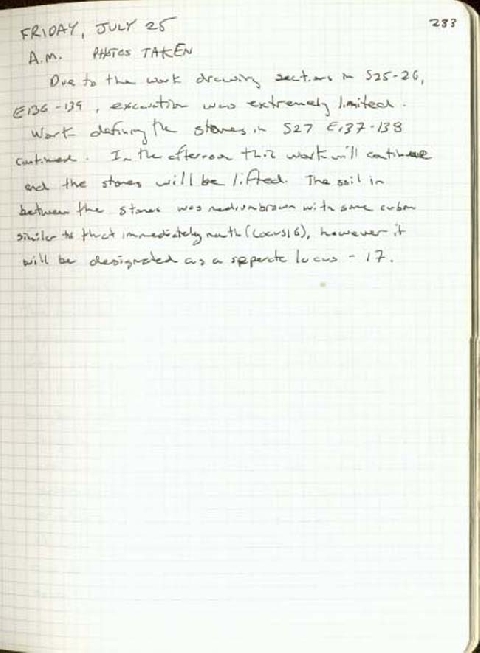 FRIDAY, JULY 25
233
A.M. PHOTOS TAKEN
Due to the work drawing sections in S25-26,
E136-139, excavation was extremely limited.
Work defining the stones in S27 E137-138
continued. In the afternoon this work will continue
and the stones will be lifted. The soil in
between the stones was medium brown with some carbon
similar to that immediately north (Locus 16), however it
will be designated as a seperate locus - 17.